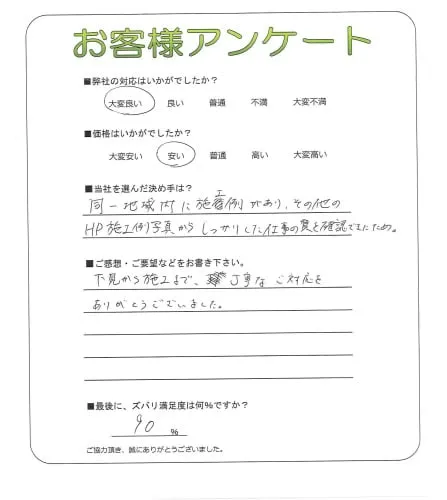 お客様アンケート
■弊社の対応はいかがでしたか?
大変良い 良い 普通 不満 大変不満
■価格はいかがでしたか?
大変安い 安い 普通 高い 大変高い
■当社を選んだ決め手は?
同一地域内に施工例があり、その他の
HP施工例写真からしっかりした仕事の質を確認できたため。
■ご感想・ご要望などをお書き下さい。
下見から施工まで、丁寧なご対応を
ありがとうございました。
■最後に、ズバリ満足度は何%ですか?
90 %
ご協力頂き、誠にありがとうございました。